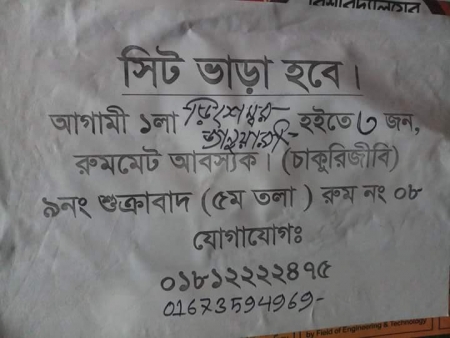 সিট ভাড়া হবে।
আগামী ১লা ডিসেম্বর- জানুয়ারী- হইতে ৩ জন,
রুমমেট আবস্যক। (চাকুরিজীবি)
৯নং শুক্রাবাদ (৫ম তলা) রুম নং ০৮
যোগাযোগঃ
০১৮১২২২২৪৭৫
01673594969-
by Field of Engineering & Technology